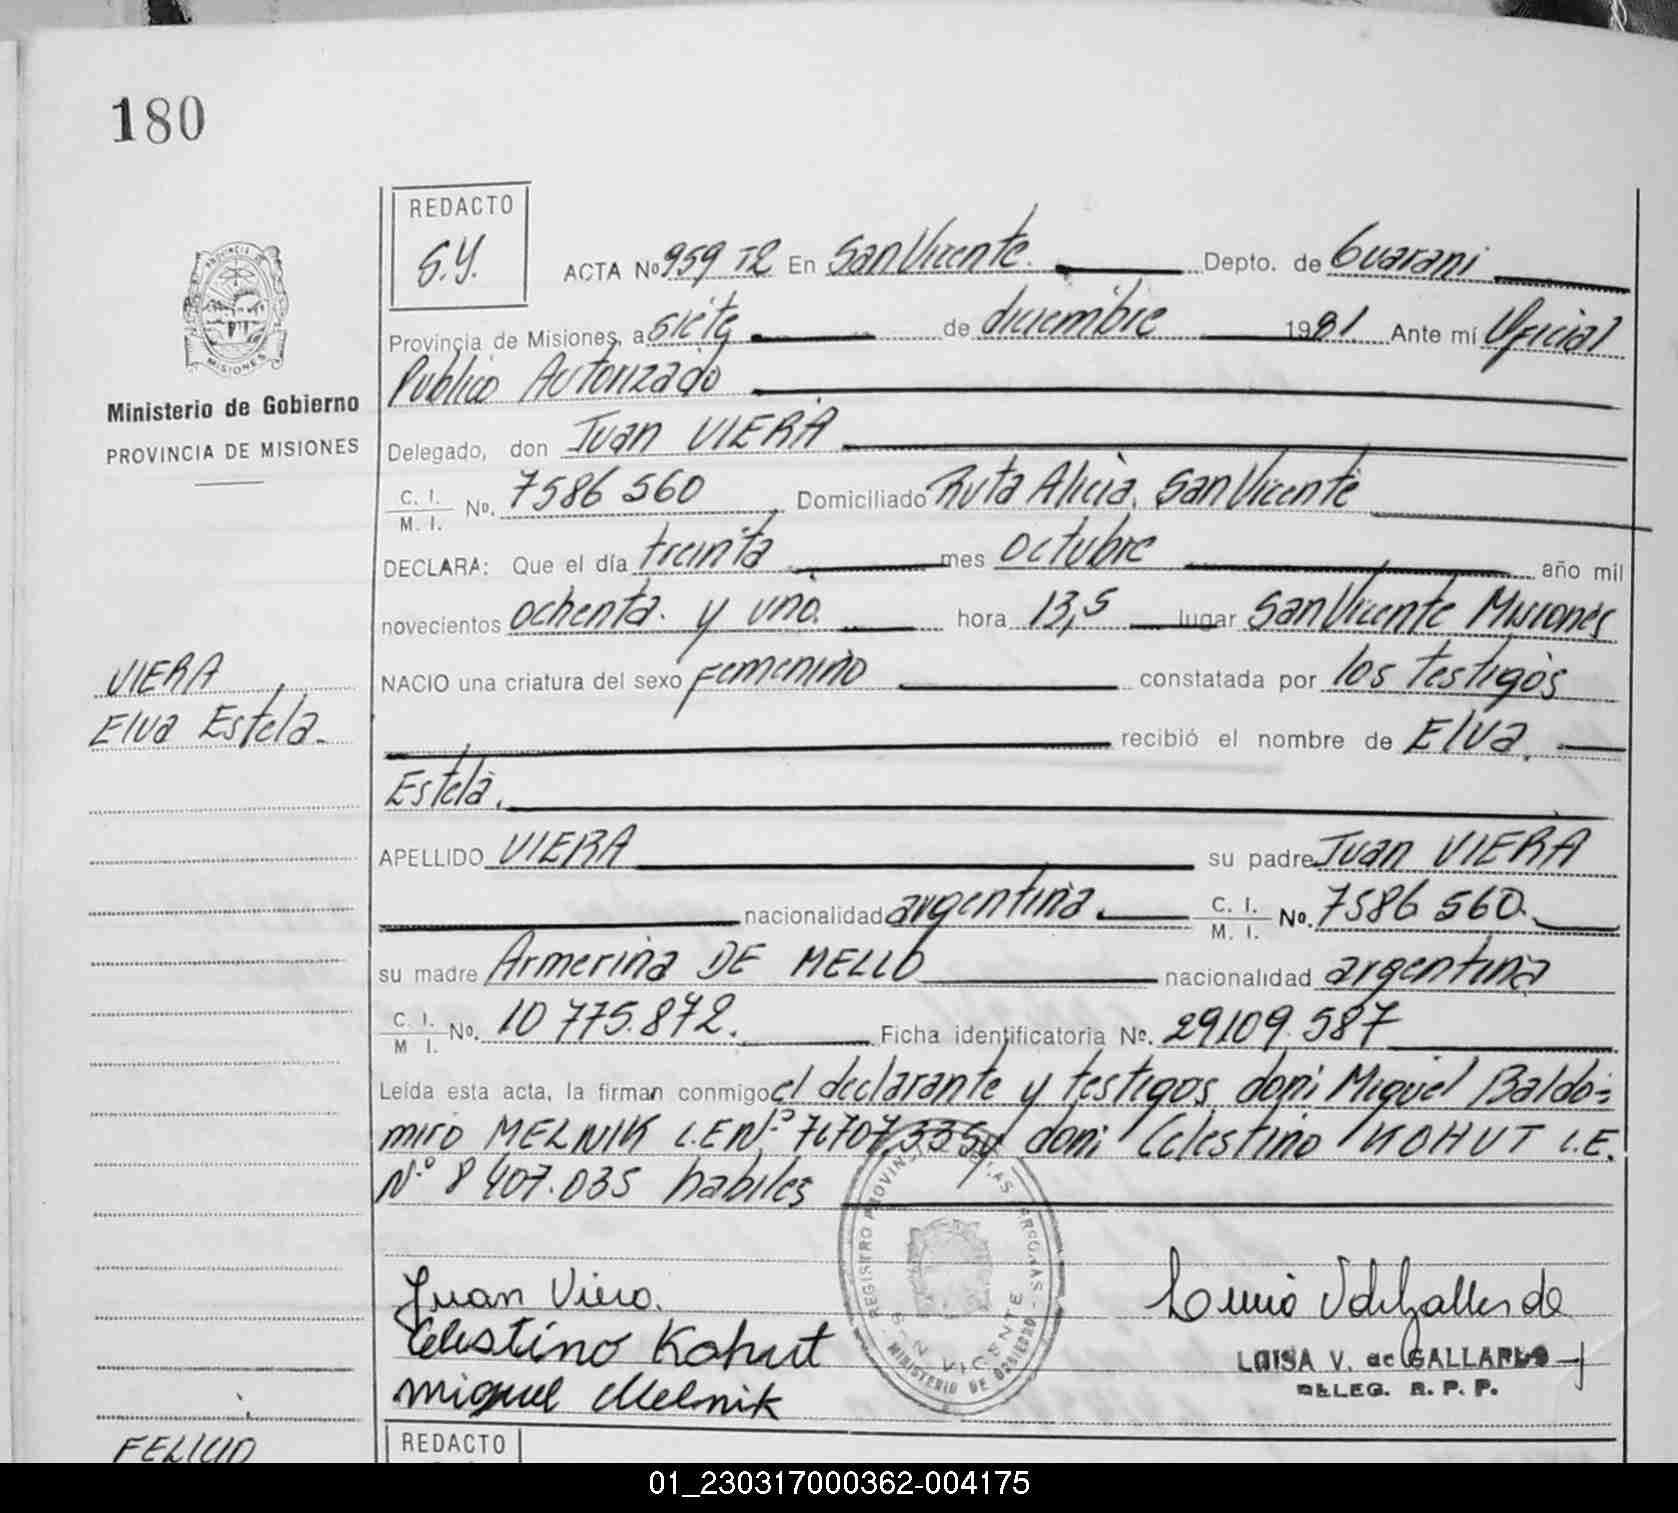 180
REDACTO
S.Y.
ACTA Nº 959 T2 En San Vicente. Depto. de Guarani
PROVINCIA DE MISIONES
Provincia de Misiones, a siete de diciembre 1981. Ante mí Oficial
Publico Autorizado
Ministerio de Gobierno
PROVINCIA DE MISIONES
Delegado, don Juan VIERA
C. I. M. I. Nº. 7586 560 Domiciliado Ruta Alicia. San Vicente
DECLARA: Que el día treinta mes octubre año mil
novecientos ochenta. y uno. hora 13,5 lugar San Vicente Misiones
VIERA
Elva Estela.
NACIO una criatura del sexo Femenino constatada por los testigos
recibió el nombre de Elva.
Estela.
APELLIDO VIERA su padre Juan VIERA
nacionalidad argentina. C. I. M. I. Nº. 7586 560.
su madre Armerina DE MELLO nacionalidad argentina
C. I. M I. Nº. 10 775.872. Ficha identificatoria Nº. 29109.587
Leída esta acta, la firman conmigo el declarante y testigos don: Miguel Baldo=
miro MELNIK L.E Nº don: Celestino KOHUT L.E.
Nº 8 407.035 habiles
REGISTRO PROVINCIAL DE LAS PERSONAS
SAN VICENTE
MINISTERIO DE GOBIERNO
Juan Viera.
Celestino Kohut
Miguel Melnik
LUISA V. de GALLARDO
DELEG. R. P. P.
FELICIO
REDACTO
01_230317000362-004175